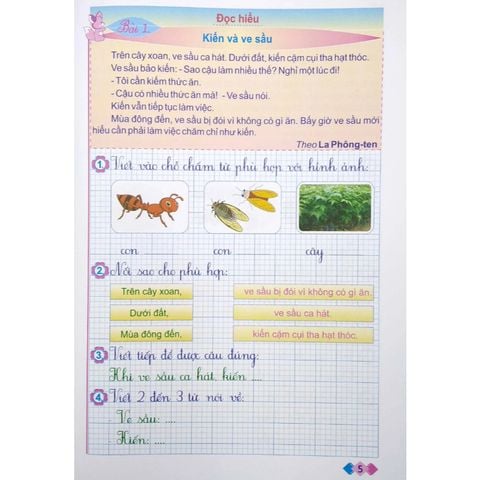 Bài 1.
Đọc hiểu
Kiến và ve sầu
Trên cây xoan, ve sầu ca hát. Dưới đất, kiến cặm cụi tha hạt thóc.
Ve sầu bảo kiến: - Sao cậu làm nhiều thế? Nghỉ một lúc đi!
- Tôi cần kiếm thức ăn.
- Cậu có nhiều thức ăn mà! - Ve sầu nói.
Kiến vẫn tiếp tục làm việc.
Mùa đông đến, ve sầu bị đói vì không có gì ăn. Bấy giờ ve sầu mới
hiểu cần phải làm việc chăm chỉ như kiến.
Theo La Phông-ten
1. Viết vào chỗ chấm từ phù hợp với hình ảnh:
con con cây
2. Nối sao cho phù hợp:
Trên cây xoan, ve sầu bị đói vì không có gì ăn.
Dưới đất, ve sầu ca hát.
Mùa đông đến, kiến cặm cụi tha hạt thóc.
3. Viết tiếp để được câu đúng:
Khi ve sầu ca hát, kiến ....
4. Viết 2 đến 3 từ nói về:
- Ve sầu: ....
- Kiến: ....
5